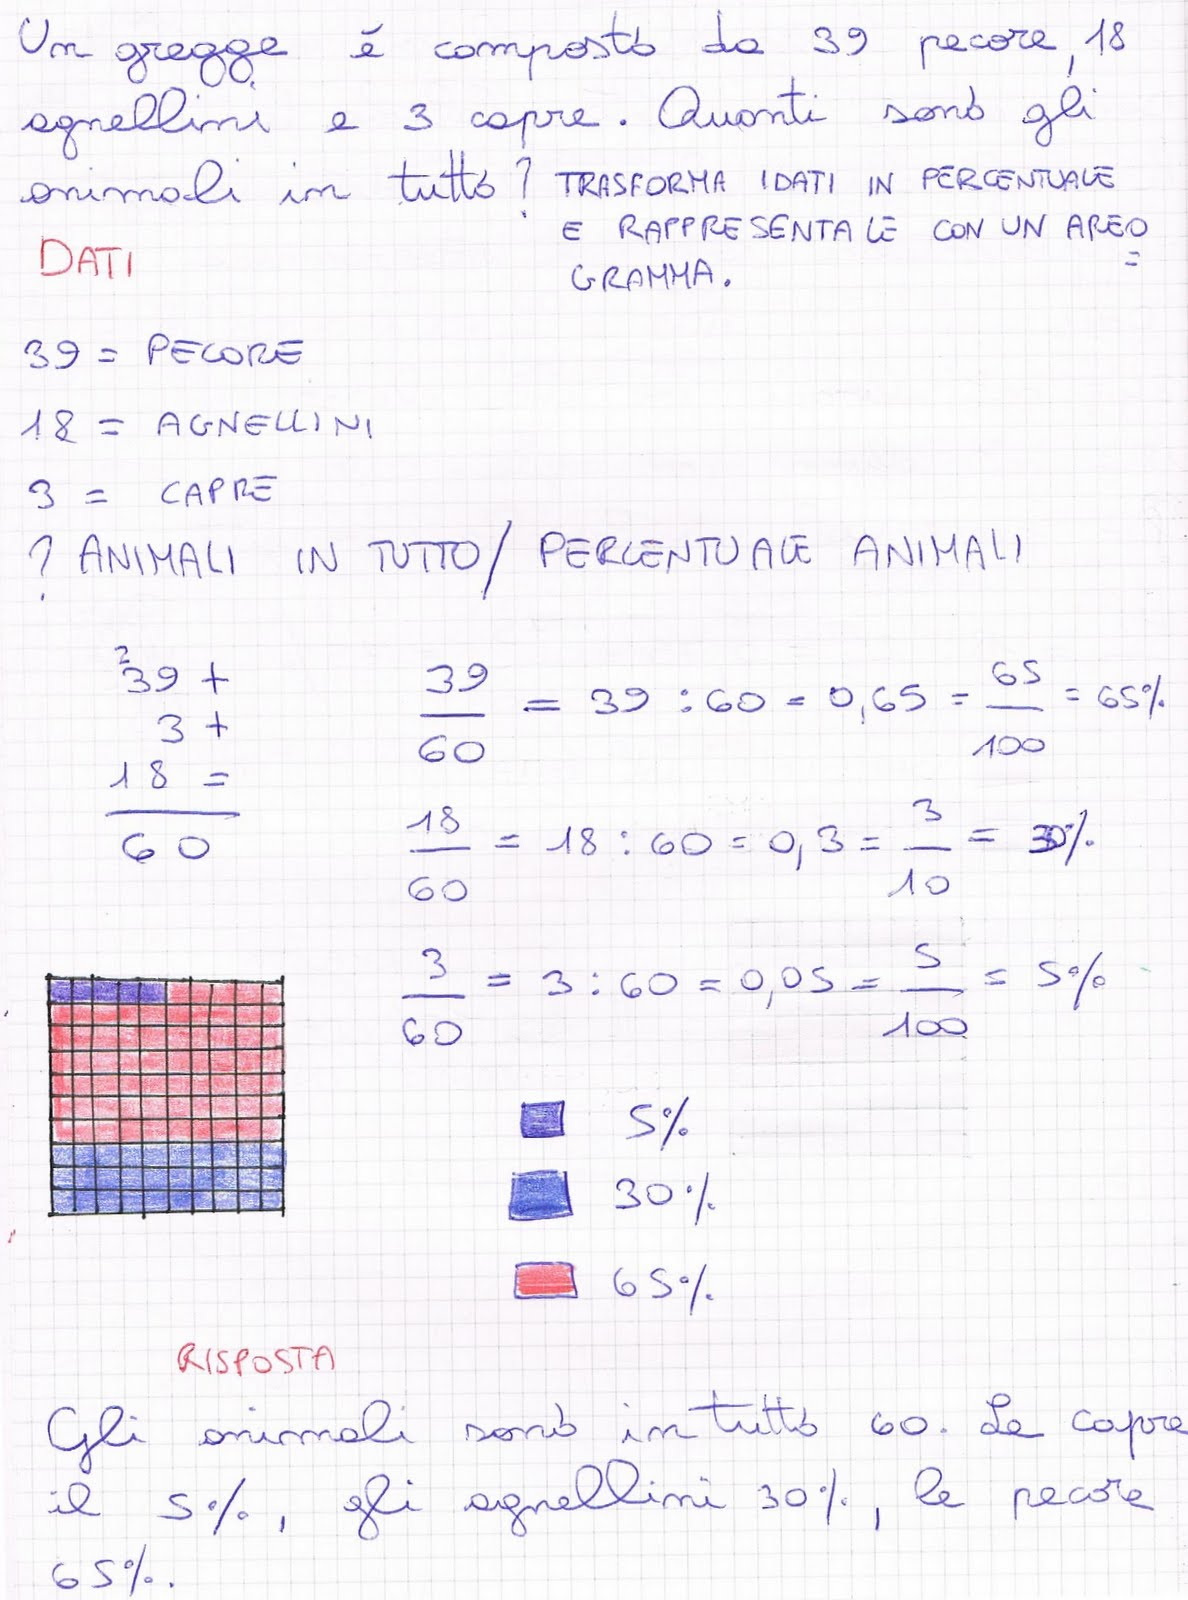 Un gregge é composto da 39 pecore, 18
agnellini e 3 capre. Quanti sono gli
animali in tutto? TRASFORMA I DATI IN PERCENTUALE
E RAPPRESENTALE CON UN AREO
=
GRAMMA.
DATI
39 = PECORE
18 = AGNELLINI
3 = CAPRE
? ANIMALI IN TUTTO/ PERCENTUALE ANIMALI
2
39 +
3 +
18 =
60
39/60 = 39 : 60 = 0,65 = 65/100 = 65%
18/60 = 18 : 60 = 0,3 = 3/10 = 30%
3/60 = 3 : 60 = 0,05 = 5/100 = 5%
5%
30%
65%
RISPOSTA
Gli animali sono in tutto 60. Le capre
il 5%, gli agnellini 30%, le pecore
65%.